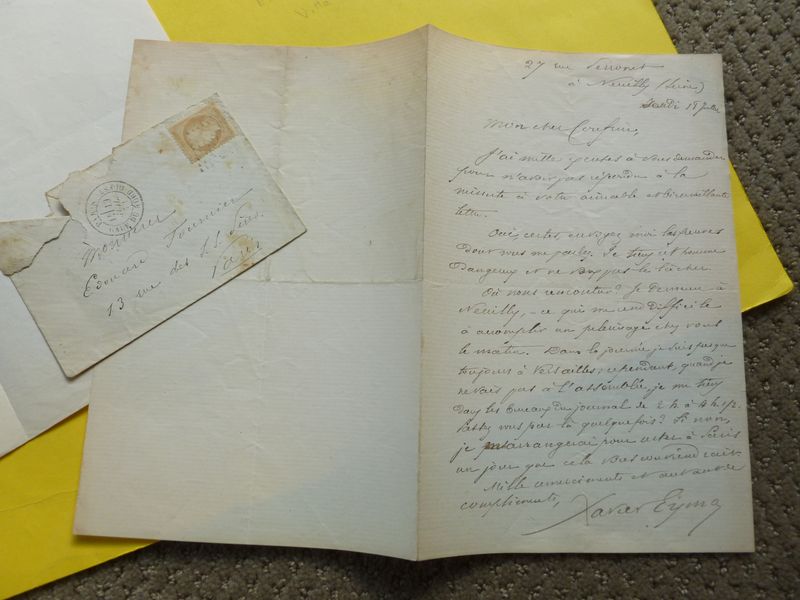 27 rue Perronet
à Neuilly (Seine)
18
Mon cher Confrère,
J'ai mille excuses à vous demander
pour n'avoir pas répondu à la
minute à votre aimable et bienveillante
lettre.
Oui, certes, envoyez moi les preuves
dont vous me parlez. Je tiens cet homme
dangereux et ne veux pas le lâcher.
Où nous rencontrer? Je demeure à
Neuilly, - ce qui me rend difficile
à accomplir un pelerinage chez vous
le matin. Dans la journée je suis presque
toujours à Versailles; cependant, quand je
ne vais pas à l'assemblée, je me tiens
dans les bureaux du journal de 2 h à 4 h 1/2.
Passez vous par là quelquefois? Si non,
je m'arrangerai pour rester à Paris
un jour que cela vous conviendrait.
Mille remerciments et autant de
compliments,
Xavier Eyma
Monsieur
Edouard Fournier
13 rue des S.S. Pères.
Paris